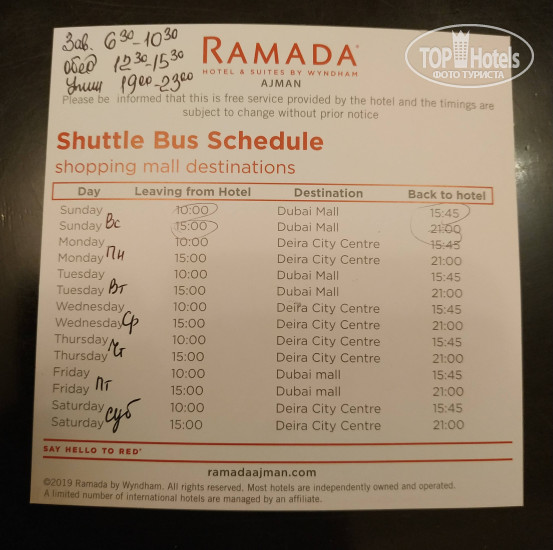 Зав. 6³⁰-10³⁰
обед 12³⁰-15³⁰
Ужин 19⁰⁰-23⁰⁰
TOP Hotels
ФОТО ТУРИСТА
RAMADA®
HOTEL & SUITES BY WYNDHAM
AJMAN
Please be informed that this is free service provided by the hotel and the timings are
subject to change without prior notice
Shuttle Bus Schedule
shopping mall destinations
Day Leaving from Hotel Destination Back to hotel
Sunday 10:00 Dubai Mall 15:45
Sunday Вс 15:00 Dubai Mall 21:00
Monday 10:00 Deira City Centre 15:45
Monday Пн 15:00 Deira City Centre 21:00
Tuesday 10:00 Dubai Mall 15:45
Tuesday Вт 15:00 Dubai Mall 21:00
Wednesday 10:00 Deira City Centre 15:45
Wednesday Ср 15:00 Deira City Centre 21:00
Thursday 10:00 Deira City Centre 15:45
Thursday Чт 15:00 Deira City Centre 21:00
Friday 10:00 Dubai mall 15:45
Friday Пт 15:00 Dubai mall 21:00
Saturday 10:00 Deira City Centre 15:45
Saturday Суб 15:00 Deira City Centre 21:00
SAY HELLO TO RED®
ramadaajman.com
©2019 Ramada by Wyndham. All rights reserved. Most hotels are independently owned and operated.
A limited number of international hotels are managed by an affiliate.